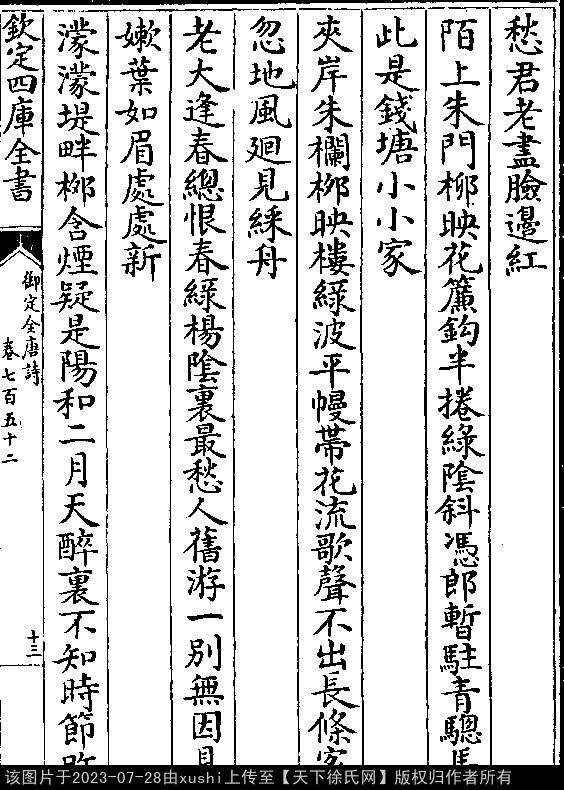 愁君老盡臉邊紅
陌上朱門栁映花簾鈎半捲綠陰斜憑郎暫駐青驄馬
此是錢塘小小家
夾岸朱欄栁映樓緑波平幔帶花流歌聲不出長條宻
忽地風廻見綵舟
老大逢春總恨春緑楊陰裏最愁人舊游一別無因見
嫩葉如眉處處新
濛濛堤畔栁含煙疑是陽和二月天醉裏不知時節改
欽定四庫全書
御定全唐詩
卷七百五十二
十三
该图片于2023-07-28由xushi上传至【天下徐氏网】版权归作者所有